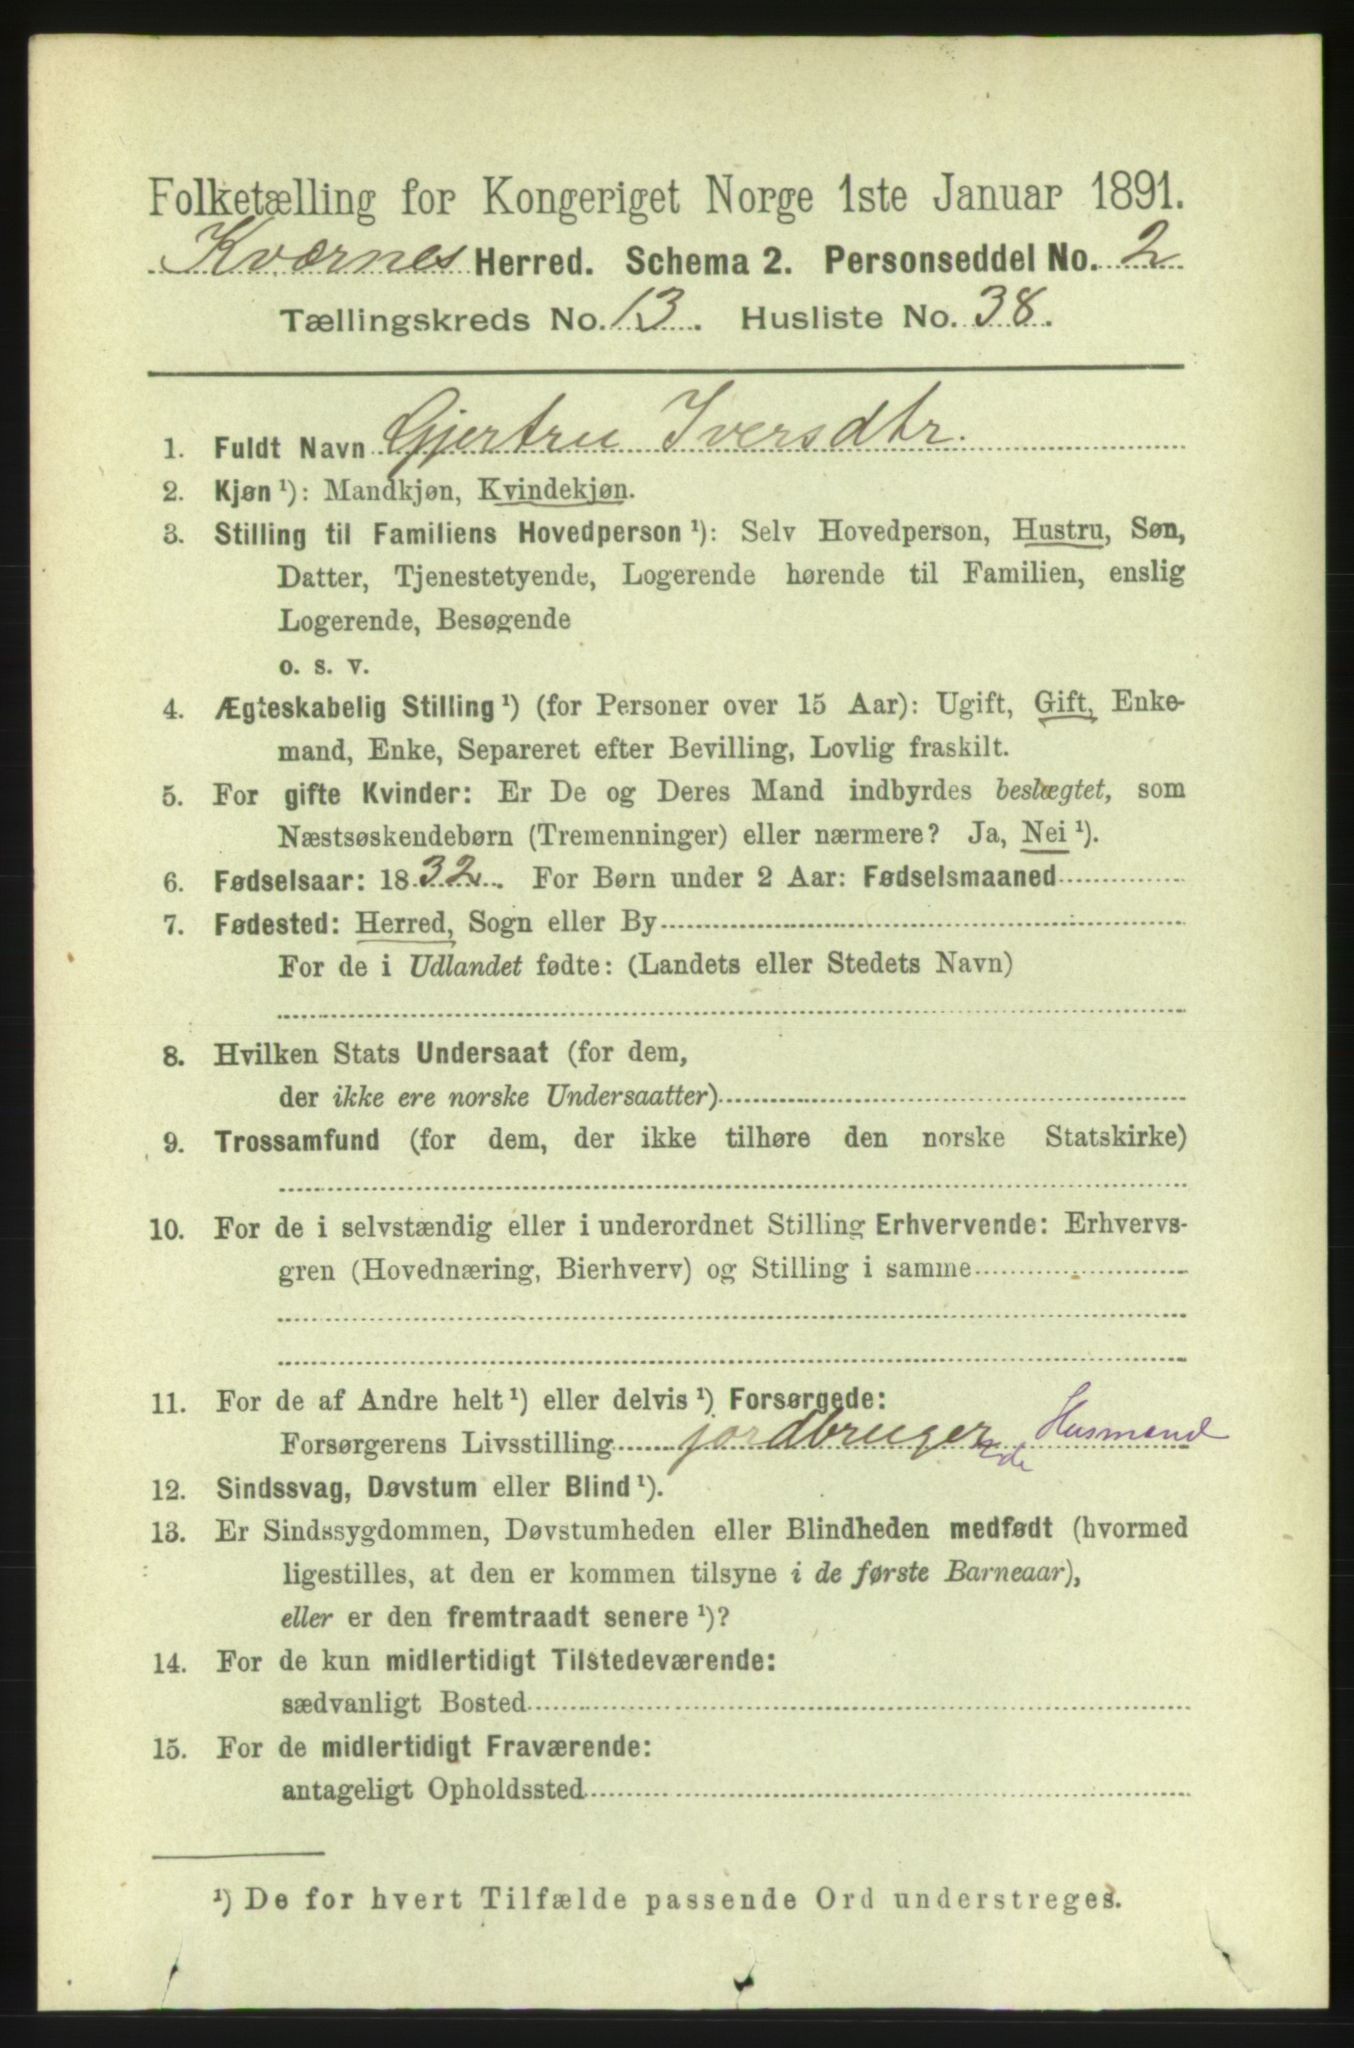 Folketælling for Kongeriget Norge 1ste Januar 1891.
Kværnes Herred. Schema 2. Personseddel No. 2
Tællingskreds No. 13. Husliste No. 38.
1. Fuldt Navn Gjertru Iversdtr.
2. Kjøn ¹): Mandkjøn, Kvindekjøn.
3. Stilling til Familiens Hovedperson ¹): Selv Hovedperson, Hustru, Søn,
Datter, Tjenestetyende, Logerende hørende til Familien, enslig
Logerende, Besøgende
o. s. v.
4. Ægteskabelig Stilling ¹) (for Personer over 15 Aar): Ugift, Gift, Enke-
mand, Enke, Separeret efter Bevilling, Lovlig fraskilt.
5. For gifte Kvinder: Er De og Deres Mand indbyrdes beslægtet, som
Næstsøskendebørn (Tremenninger) eller nærmere? Ja, Nei ¹).
6. Fødselsaar: 1832. For Børn under 2 Aar: Fødselsmaaned
7. Fødested: Herred, Sogn eller By
For de i Udlandet fødte: (Landets eller Stedets Navn)
8. Hvilken Stats Undersaat (for dem,
der ikke ere norske Undersaatter)
9. Trossamfund (for dem, der ikke tilhøre den norske Statskirke)
10. For de i selvstændig eller i underordnet Stilling Erhvervende: Erhvervs-
gren (Hovednæring, Bierhverv) og Stilling i samme
11. For de af Andre helt ¹) eller delvis ¹) Forsørgede:
Forsørgerens Livsstilling jordbruger Husmand
12. Sindssvag, Døvstum eller Blind ¹).
13. Er Sindssygdommen, Døvstumheden eller Blindheden medfødt (hvormed
ligestilles, at den er kommen tilsyne i de første Barneaar),
eller er den fremtraadt senere ¹)?
14. For de kun midlertidigt Tilstedeværende:
sædvanligt Bosted
15. For de midlertidigt Fraværende:
antageligt Opholdssted
¹) De for hvert Tilfælde passende Ord understreges.